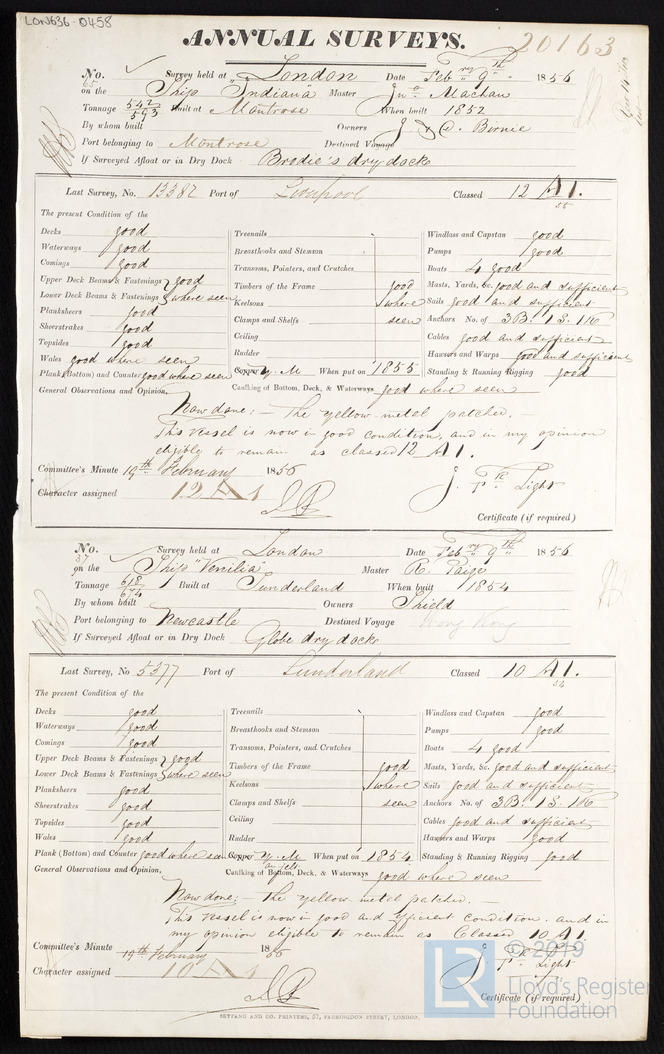 LON636-0458
ANNUAL SURVEYS.
20163
No. 65 Survey held at London Date Feb ry 9th 1856
on the Ship "Indiana" Master Jno Machan
Tonnage 542/593 Built at Montrose When built 1852
By whom built Owners J & D. Birnie
Port belonging to Montrose Destined Voyage
If Surveyed Afloat or in Dry Dock Brodie's dry dock
Last Survey, No. 13382 Port of Liverpool Classed 12 A1. 55
The present Condition of the
Decks good
Waterways good
Comings good
Upper Deck Beams & Fastenings good
Lower Deck Beams & Fastenings where seen
Planksheers good
Sheerstrakes good
Topsides good
Wales good where seen
Plank (Bottom) and Counter good where seen
Treenails
Breasthooks and Stemson
Transoms, Pointers, and Crutches
Timbers of the Frame good
Keelsons where
Clamps and Shelfs seen
Ceiling
Rudder
Copper Y. M When put on 1855
Caulking of Bottom, Deck, & Waterways good where seen
Windlass and Capstan good
Pumps good
Boats 4 good
Masts, Yards, &c. good and sufficient
Sails good and sufficient
Anchors No. of 3B. 1S. 1K
Cables good and sufficient
Hawsers and Warps good and sufficient
Standing & Running Rigging good
General Observations and Opinion,
Now done: — The yellow metal patched. —
This vessel is now in good condition, and in my opinion
eligible to remain as classed 12 A1.
Committee's Minute 19th February 1856
Character assigned 12 A1
J. Pk Light
Certificate (if required)
No. 37 Survey held at London Date Feb ry 9th 1856
on the Ship "Venilia" Master R. Paige
Tonnage 618/674 Built at Sunderland When built 1854
By whom built Owners Shield
Port belonging to Newcastle Destined Voyage Hong Kong
If Surveyed Afloat or in Dry Dock Globe dry dock
Last Survey, No 5377 Port of Sunderland Classed 10 A1. 54
The present Condition of the
Decks good
Waterways good
Comings good
Upper Deck Beams & Fastenings good
Lower Deck Beams & Fastenings where seen
Planksheers good
Sheerstrakes good
Topsides good
Wales good
Plank (Bottom) and Counter good where seen
Treenails
Breasthooks and Stemson
Transoms, Pointers, and Crutches
Timbers of the Frame good
Keelsons where
Clamps and Shelfs seen
Ceiling
Rudder
Copper Y. M When put on 1854
Caulking of Bottom, Deck, & Waterways good where seen
Windlass and Capstan good
Pumps good
Boats 4 good
Masts, Yards, &c. good and sufficient
Sails good and sufficient
Anchors No. of 3B. 1S. 1K
Cables good and sufficient
Hawsers and Warps good
Standing & Running Rigging good
General Observations and Opinion,
Now done: — The yellow metal patched. —
This vessel is now in good and efficient condition. and in
my opinion eligible to remain as Classed 10 A1
Committee's Minute 19th February 1856
Character assigned 10 A1
J. Pk Light
Certificate (if required)
SEYFANG AND CO. PRINTERS, 57, FARRINGDON STREET, LONDON.
LR
© 2019
Lloyd's Register
Foundation